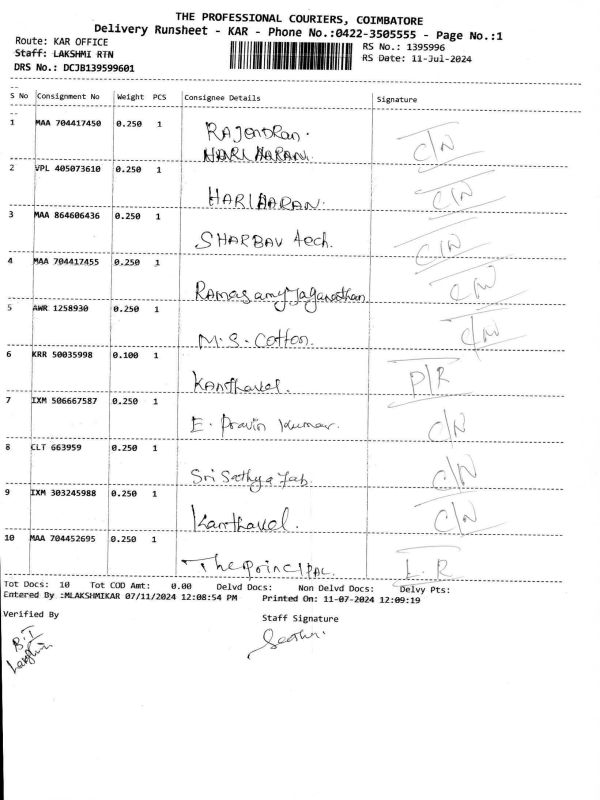 THE PROFESSIONAL COURIERS, COIMBATORE
Delivery Runsheet - KAR - Phone No.:0422-3505555 - Page No.:1
Route: KAR OFFICE
RS No.: 1395996
Staff: LAKSHMI RTN
RS Date: 11-Jul-2024
DRS No.: DCJB139599601
S No Consignment No Weight PCS Consignee Details Signature
1 MAA 704417450 0.250 1 RAJendRan. C/N
HARI HARAN.
2 VPL 405073610 0.250 1 HARIHARAN. C/N
3 MAA 864606436 0.250 1 SHARBAV tech. C/N
4 MAA 704417455 0.250 1 Ramasamy Jaganathan C/N
5 AWR 1258930 0.250 1 M.S. Cotton. C/N
6 KRR 50035998 0.100 1 Kanthavel. P/R
7 IXM 506667587 0.250 1 E. Pravin Kumar. C/N
8 CLT 663959 0.250 1 Sri Sathya Fab. C/N
9 IXM 303245988 0.250 1 Kanthavel. C/N
10 MAA 704452695 0.250 1 The PrinciPAL. L.R
Tot Docs: 10 Tot COD Amt: 0.00 Delvd Docs: Non Delvd Docs: Delvy Pts:
Entered By :MLAKSHMIKAR 07/11/2024 12:08:54 PM Printed On: 11-07-2024 12:09:19
Verified By
Staff Signature
B.T